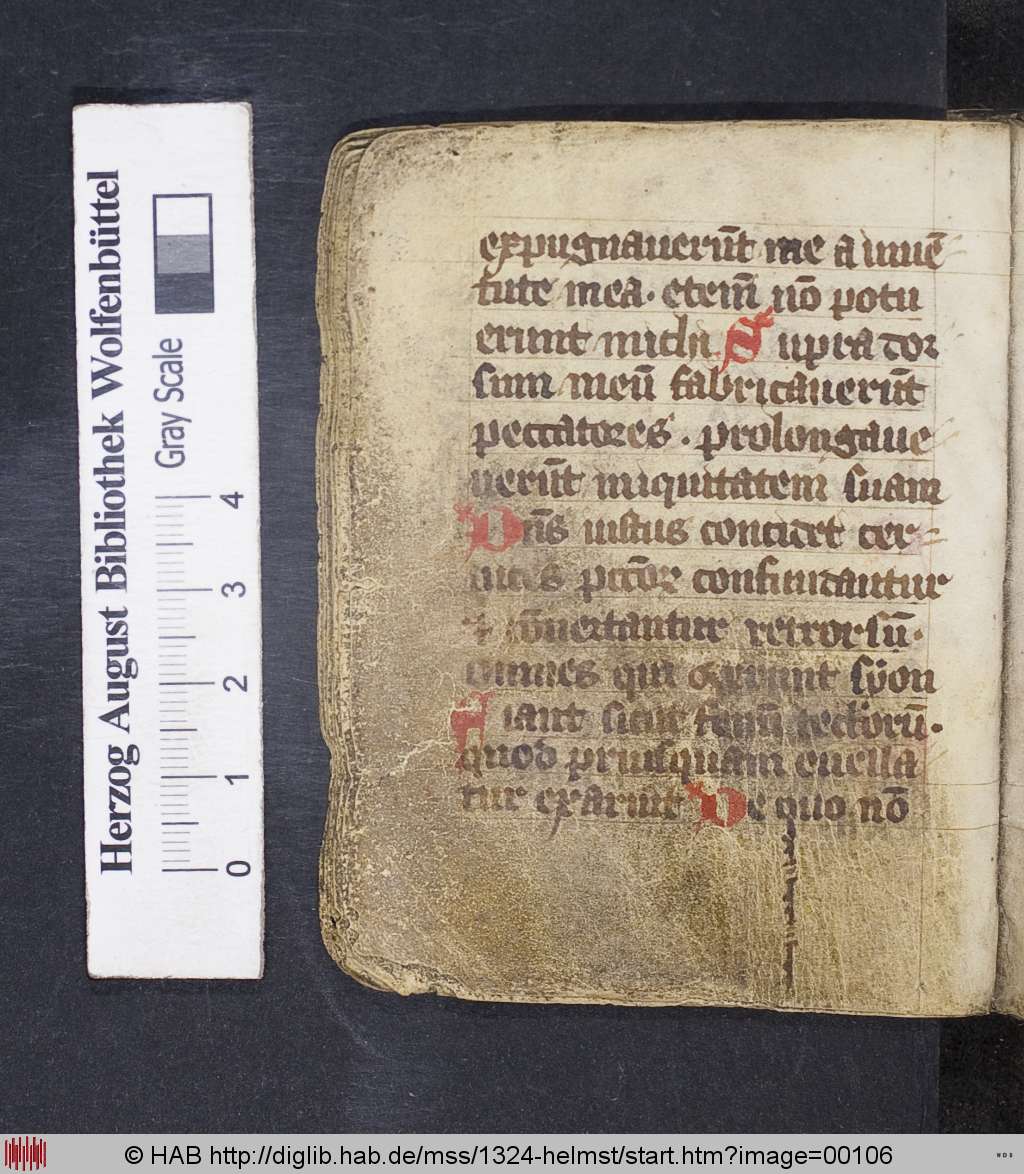 Herzog August Bibliothek Wolfenbüttel
Gray Scale
0 1 2 3 4
expugnauerūt me a iuuē
tute mea. etem̄ nō potu
erunt michi Supra dor
sum meū fabricauerūt
peccatores. prolongaue
uerūt iniquitatem suam
Dn̄s iustus concidet cer
uices pctōr confundantur
⁊ cōuertantur retrorsū.
omnes qui oderunt syon
Fiant sicut fenū tectorū.
quod priusquam euella
tur exaruit De quo nō
© HAB http://diglib.hab.de/mss/1324-helmst/start.htm?image=00106